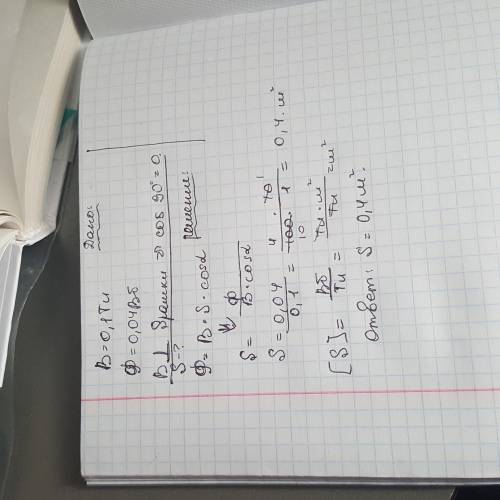 Дано:
B=0,1Тл
Ф=0,04Вб
B⊥ рамки ⇒ cos 90°=0
S-?
Решение:
Ф=B·S·cosα
⇓
S= Ф / B·cosα
S= 0,04 / 0,1 = 4 · 10 / 100 · 1 = 0,4 м²
[S]= Вб / Тл = Тл·м² / Тл =м²
Ответ: S=0,4м².